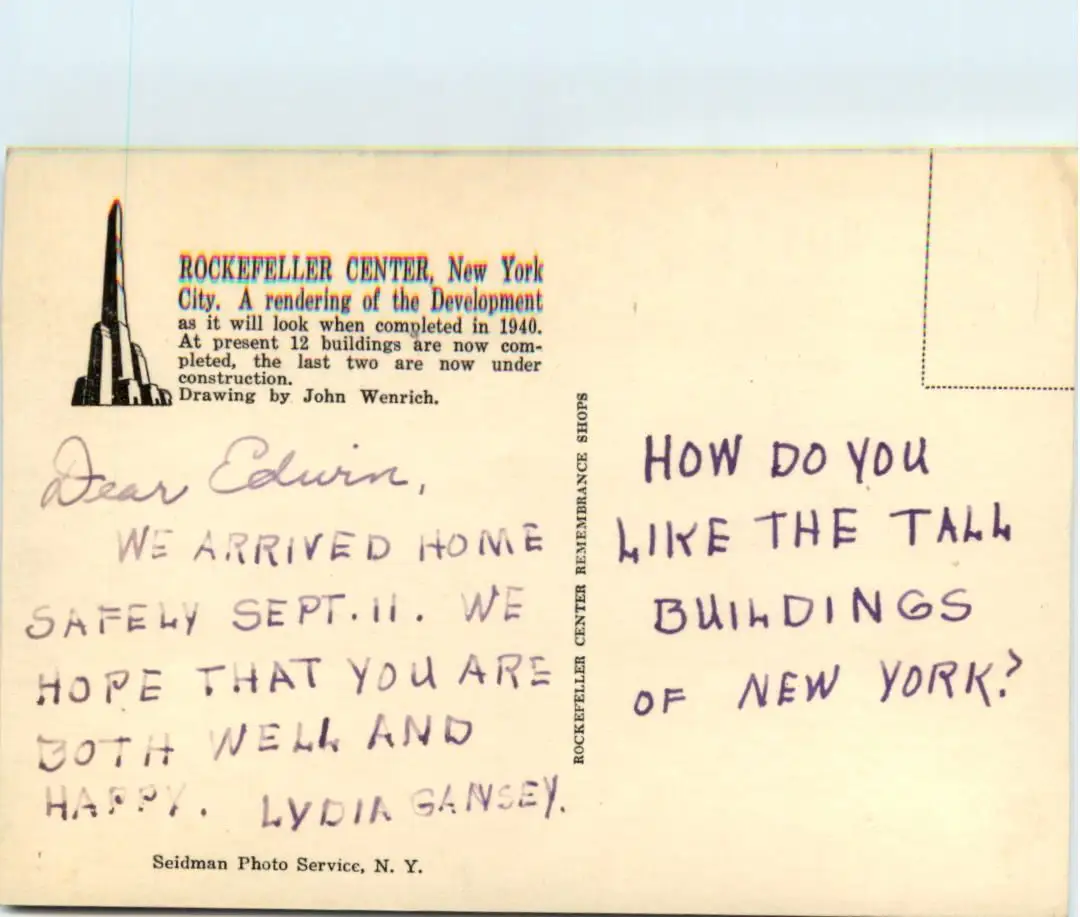 ROCKEFELLER CENTER, New York
City. A rendering of the Development
as it will look when completed in 1940.
At present 12 buildings are now com-
pleted, the last two are now under
construction.
Drawing by John Wenrich.
Dear Edwin,
WE ARRIVED HOME
SAFELY SEPT. 11. WE
HOPE THAT YOU ARE
BOTH WELL AND
HAPPY. LYDIA GANSEY.
Seidman Photo Service, N. Y.
ROCKEFELLER CENTER REMEMBRANCE SHOPS
HOW DO YOU
LIKE THE TALL
BUILDINGS
OF NEW YORK?